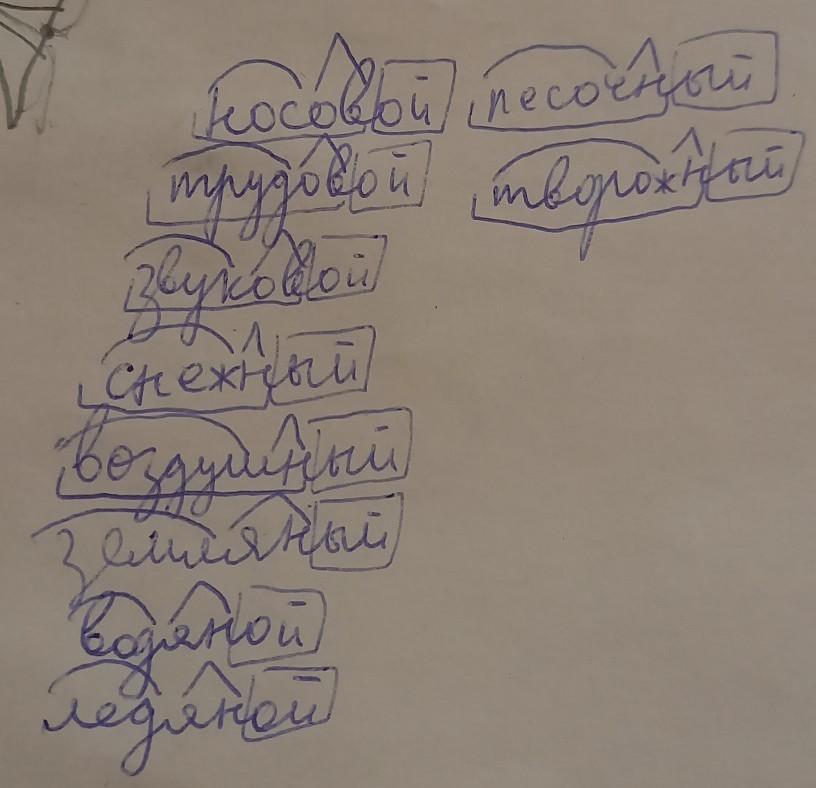 носовой песочный
трудовой творожный
звуковой
снежный
воздушный
земляный
водяной
ледяной